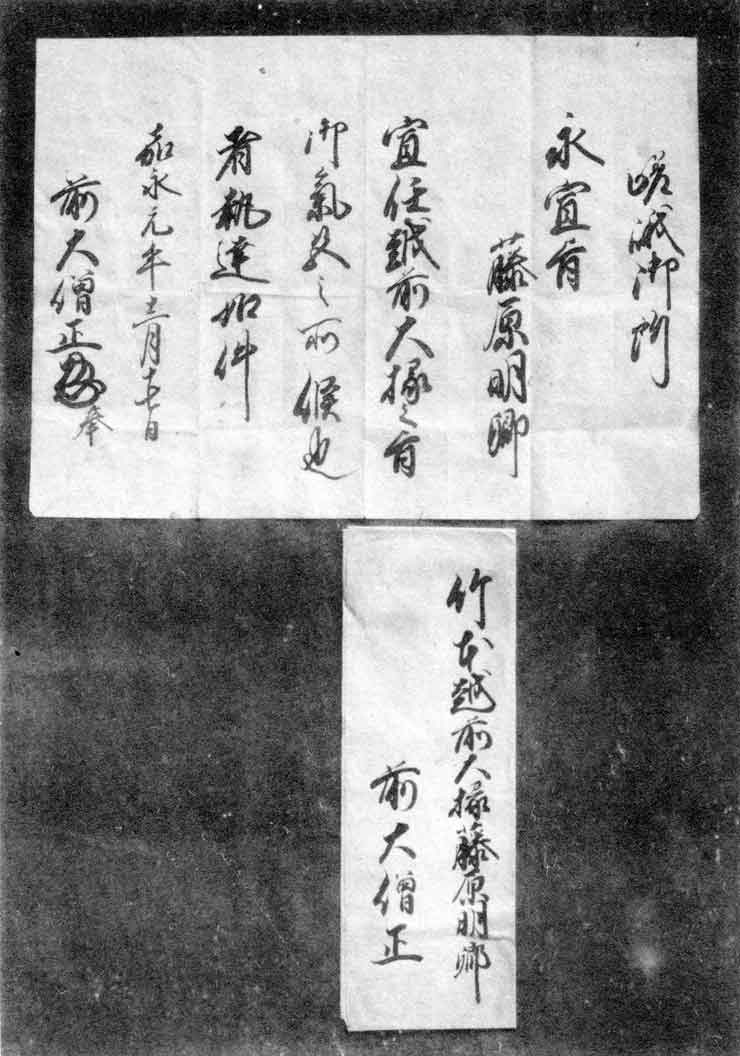 嵯峨御所
永宣旨
藤原明卿
宣任越前大掾之旨
御氣色之所候也
者執達如件
嘉永元年十二月十七日
前大僧正 奉
竹本越前大掾藤原明卿
前大僧正